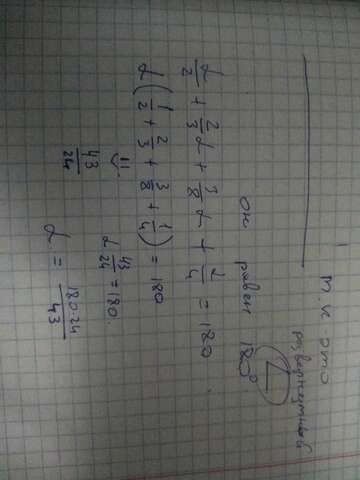 т.к это
развернутый ∠
он равен 180°
α/2 + 2/3 α + 3/8 α + α/4 = 180
α(1/2 + 2/3 + 3/8 + 1/4) = 180
=
43/24
α 43/24 = 180.
α = 180·24/43